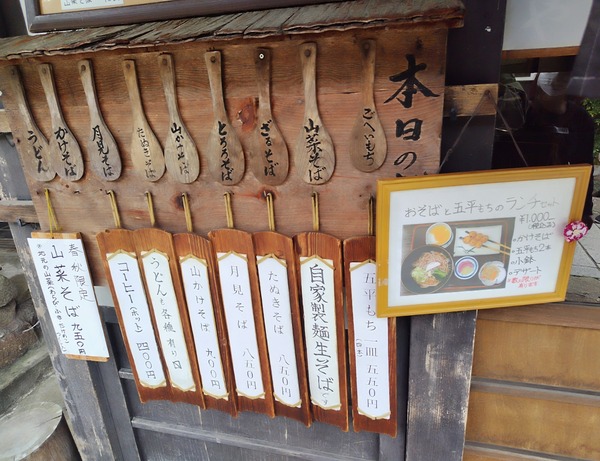 本日の
ごへいもち
山菜そば
ざるそば
とろろそば
山かけそば
たぬきそば
月見そば
かけそば
うどん
おそばと五平もちのランチセット
¥1,000
(税込)
かけそば
五平もち2本
小鉢
デザート
五平もち 一皿 五五〇円
自家製麺生そばです
たぬきそば 八五〇円
月見そば 八五〇円
山かけそば 九〇〇円
うどんも各種有り〼
コーヒー(ホット) 四〇〇円
春期限定
山菜そば 九五〇円